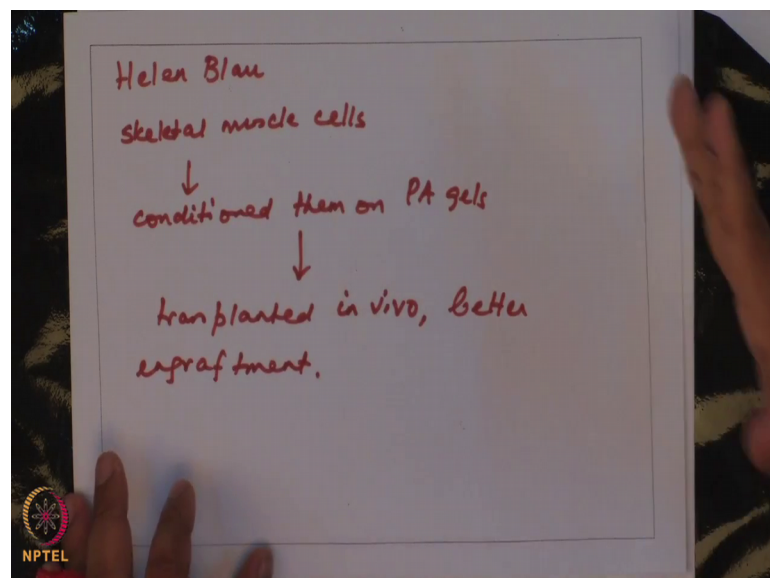 Helen Blau
skeletal muscle cells
conditioned them on PA gels
tranplanted in vivo, better
engraftment.
NPTEL